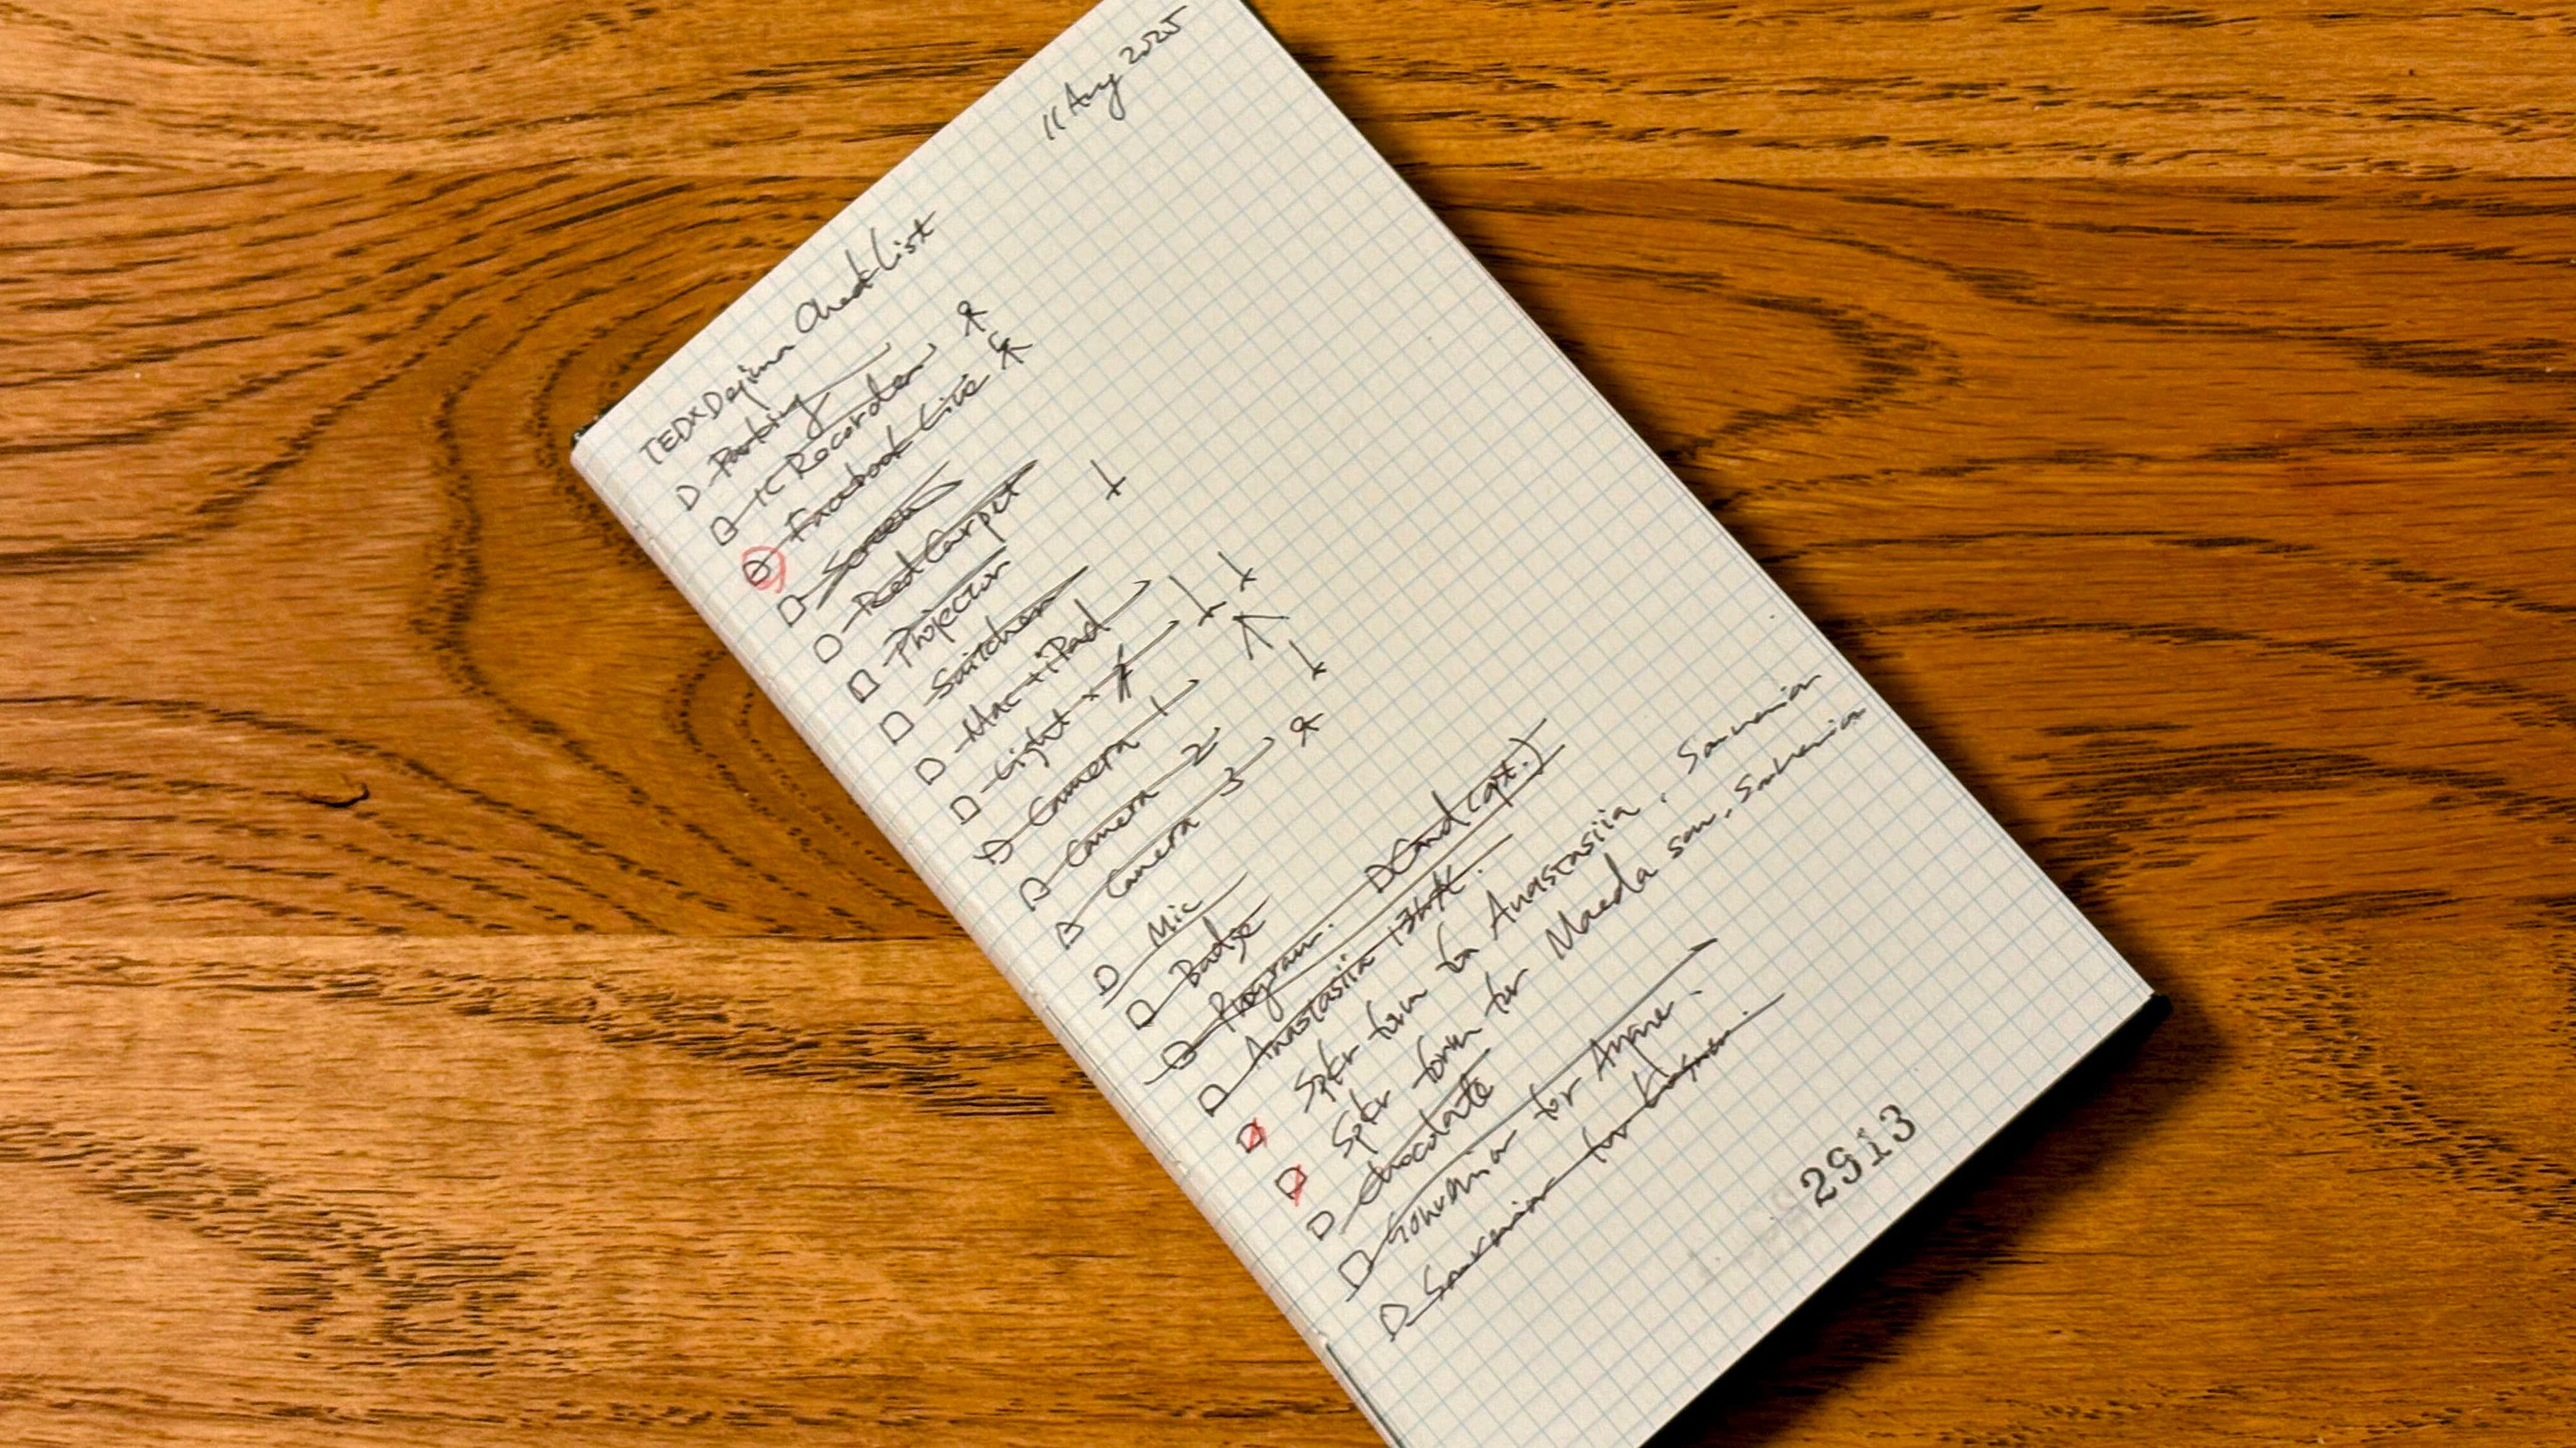 11 Aug 2025
TEDxDejima Check List
Parking
IC Recorder
Facebook Live
Screen
Red Carpet
Projector
Switcher
Mac + iPad
Light ×
Camera 1
Camera 2
Camera 3
Mic
Badge
Program. Card (opt.)
Anastasiia 13h
Spkr form for Anastasiia, Souvenir
Spkr form for Maeda san, Souvenir
chocolate
Souvenir for
Souvenir for
2913